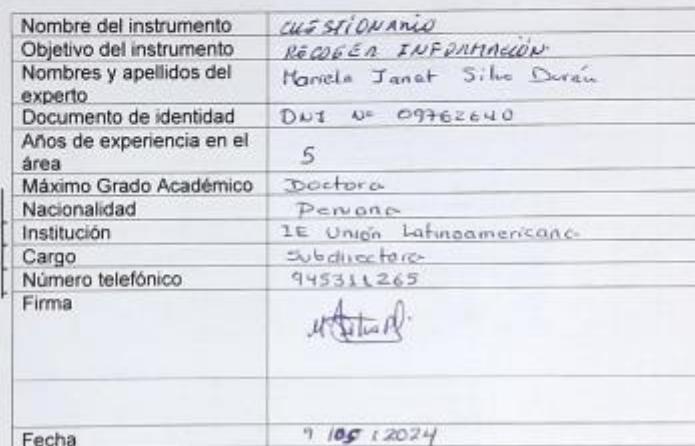 Nombre del instrumento CUESTIONARIO
Objetivo del instrumento RECOGER INFORMACIÓN
Nombres y apellidos del Mariela Janet Silva Durán
experto
Documento de identidad DNI Nº 09762640
Años de experiencia en el
área 5
Máximo Grado Académico Doctora
Nacionalidad Peruana
Institución IE Unión Latinoamericana
Cargo Subdirectora
Número telefónico 945311265
Firma
Fecha 9 / 05 / 2024